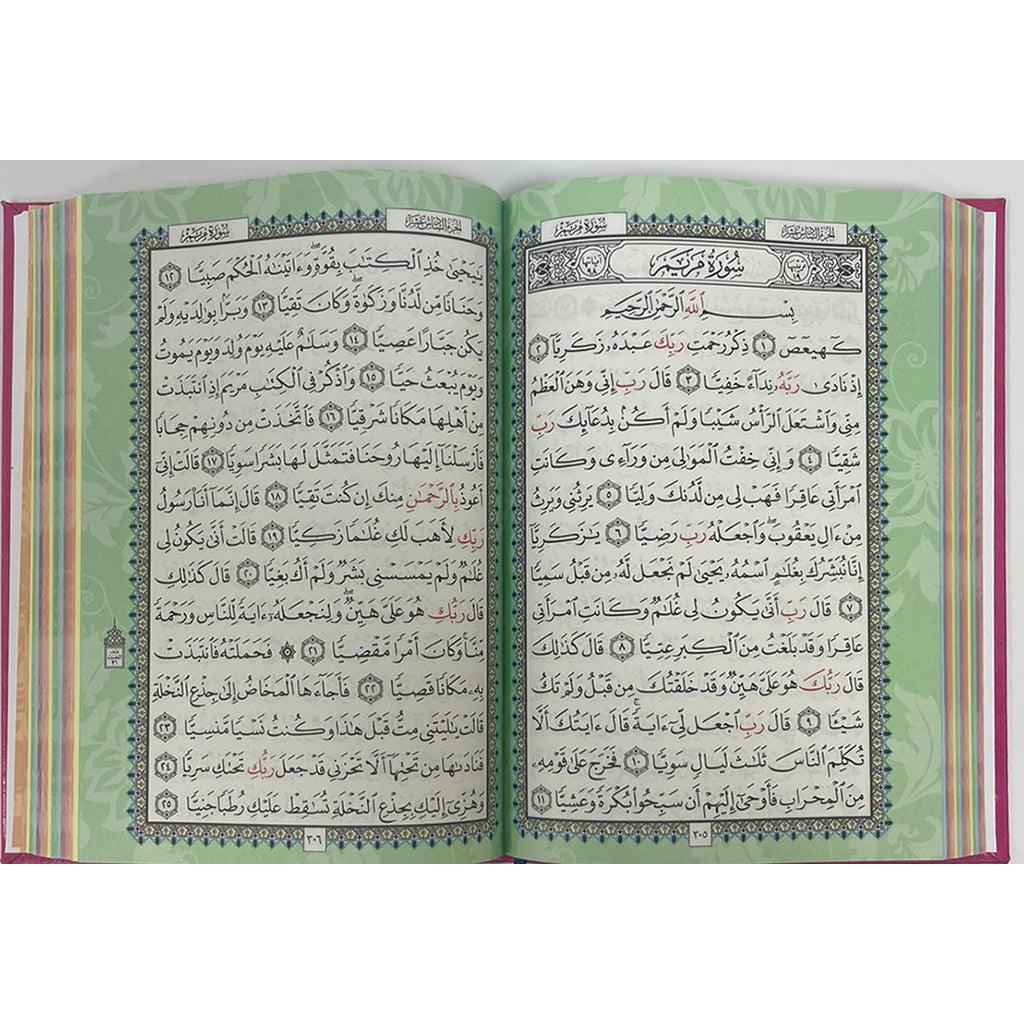 سُورَةُ مَرْيَمَ
الجزء السادس عشر
سُورَةُ مَرْيَمَ
بِسْمِ ٱللَّهِ ٱلرَّحْمَٰنِ ٱلرَّحِيمِ
كٓهيعٓصٓ ١ ذِكْرُ رَحْمَتِ رَبِّكَ عَبْدَهُۥ زَكَرِيَّآ ٢
إِذْ نَادَىٰ رَبَّهُۥ نِدَآءً خَفِيًّا ٣ قَالَ رَبِّ إِنِّى وَهَنَ ٱلْعَظْمُ
مِنِّى وَٱشْتَعَلَ ٱلرَّأْسُ شَيْبًا وَلَمْ أَكُنۢ بِدُعَآئِكَ رَبِّ
شَقِيًّا ٤ وَإِنِّى خِفْتُ ٱلْمَوَٰلِىَ مِن وَرَآءِى وَكَانَتِ
ٱمْرَأَتِى عَاقِرًا فَهَبْ لِى مِن لَّدُنكَ وَلِيًّا ٥ يَرِثُنِى وَيَرِثُ
مِنْ ءَالِ يَعْقُوبَ ۖ وَٱجْعَلْهُ رَبِّ رَضِيًّا ٦ يَٰزَكَرِيَّآ
إِنَّا نُبَشِّرُكَ بِغُلَٰمٍ ٱسْمُهُۥ يَحْيَىٰ لَمْ نَجْعَل لَّهُۥ مِن قَبْلُ سَمِيًّا
٧ قَالَ رَبِّ أَنَّىٰ يَكُونُ لِى غُلَٰمٌ وَكَانَتِ ٱمْرَأَتِى
عَاقِرًا وَقَدْ بَلَغْتُ مِنَ ٱلْكِبَرِ عِتِيًّا ٨ قَالَ كَذَٰلِكَ
قَالَ رَبُّكَ هُوَ عَلَىَّ هَيِّنٌ وَقَدْ خَلَقْتُكَ مِن قَبْلُ وَلَمْ تَكُ
شَيْـًٔا ٩ قَالَ رَبِّ ٱجْعَل لِّىٓ ءَايَةً ۚ قَالَ ءَايَتُكَ أَلَّا
تُكَلِّمَ ٱلنَّاسَ ثَلَٰثَ لَيَالٍ سَوِيًّا ١٠ فَخَرَجَ عَلَىٰ قَوْمِهِۦ
مِنَ ٱلْمِحْرَابِ فَأَوْحَىٰٓ إِلَيْهِمْ أَن سَبِّحُوا۟ بُكْرَةً وَعَشِيًّا ١١
٣٠٥
سُورَةُ مَرْيَمَ
الجزء السادس عشر
يَٰيَحْيَىٰ خُذِ ٱلْكِتَٰبَ بِقُوَّةٍ ۖ وَءَاتَيْنَٰهُ ٱلْحُكْمَ صَبِيًّا ١٢
وَحَنَانًا مِّن لَّدُنَّا وَزَكَوٰةً ۖ وَكَانَ تَقِيًّا ١٣ وَبَرًّۢا بِوَٰلِدَيْهِ وَلَمْ
يَكُن جَبَّارًا عَصِيًّا ١٤ وَسَلَٰمٌ عَلَيْهِ يَوْمَ وُلِدَ وَيَوْمَ يَمُوتُ
وَيَوْمَ يُبْعَثُ حَيًّا ١٥ وَٱذْكُرْ فِى ٱلْكِتَٰبِ مَرْيَمَ إِذِ ٱنتَبَذَتْ
مِنْ أَهْلِهَا مَكَانًا شَرْقِيًّا ١٦ فَٱتَّخَذَتْ مِن دُونِهِمْ حِجَابًا
فَأَرْسَلْنَآ إِلَيْهَا رُوحَنَا فَتَمَثَّلَ لَهَا بَشَرًا سَوِيًّا ١٧ قَالَتْ إِنِّىٓ
أَعُوذُ بِٱلرَّحْمَٰنِ مِنكَ إِن كُنتَ تَقِيًّا ١٨ قَالَ إِنَّمَآ أَنَا۠ رَسُولُ
رَبِّكِ لِأَهَبَ لَكِ غُلَٰمًا زَكِيًّا ١٩ قَالَتْ أَنَّىٰ يَكُونُ لِى
غُلَٰمٌ وَلَمْ يَمْسَسْنِى بَشَرٌ وَلَمْ أَكُ بَغِيًّا ٢٠ قَالَ كَذَٰلِكِ
قَالَ رَبُّكِ هُوَ عَلَىَّ هَيِّنٌ ۖ وَلِنَجْعَلَهُۥٓ ءَايَةً لِّلنَّاسِ وَرَحْمَةً
مِّنَّا ۚ وَكَانَ أَمْرًا مَّقْضِيًّا ٢١ ۞ فَحَمَلَتْهُ فَٱنتَبَذَتْ
بِهِۦ مَكَانًا قَصِيًّا ٢٢ فَأَجَآءَهَا ٱلْمَخَاضُ إِلَىٰ جِذْعِ ٱلنَّخْلَةِ
قَالَتْ يَٰلَيْتَنِى مِتُّ قَبْلَ هَٰذَا وَكُنتُ نَسْيًا مَّنسِيًّا ٢٣
فَنَادَىٰهَا مِن تَحْتِهَآ أَلَّا تَحْزَنِى قَدْ جَعَلَ رَبُّكِ تَحْتَكِ سَرِيًّا ٢٤
وَهُزِّىٓ إِلَيْكِ بِجِذْعِ ٱلنَّخْلَةِ تُسَٰقِطْ عَلَيْكِ رُطَبًا جَنِيًّا ٢٥
٣٠٦